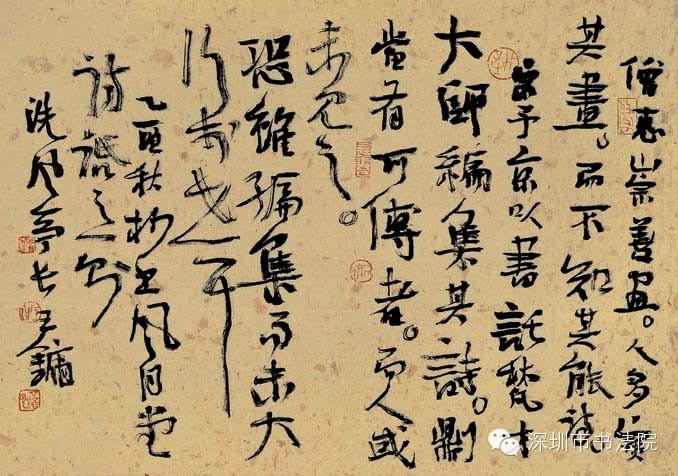 僧惠崇善畫。人多寶
其畫。而不知其能詩。
宋子京以書託梵才
大師編集其詩。則
當有可傳者。而人或
未見之。
恐雖編集而未大
行於世耳
乙酉秋杪書风月堂
詩話之一則
洗風亭長尹鏞
深圳市书法院